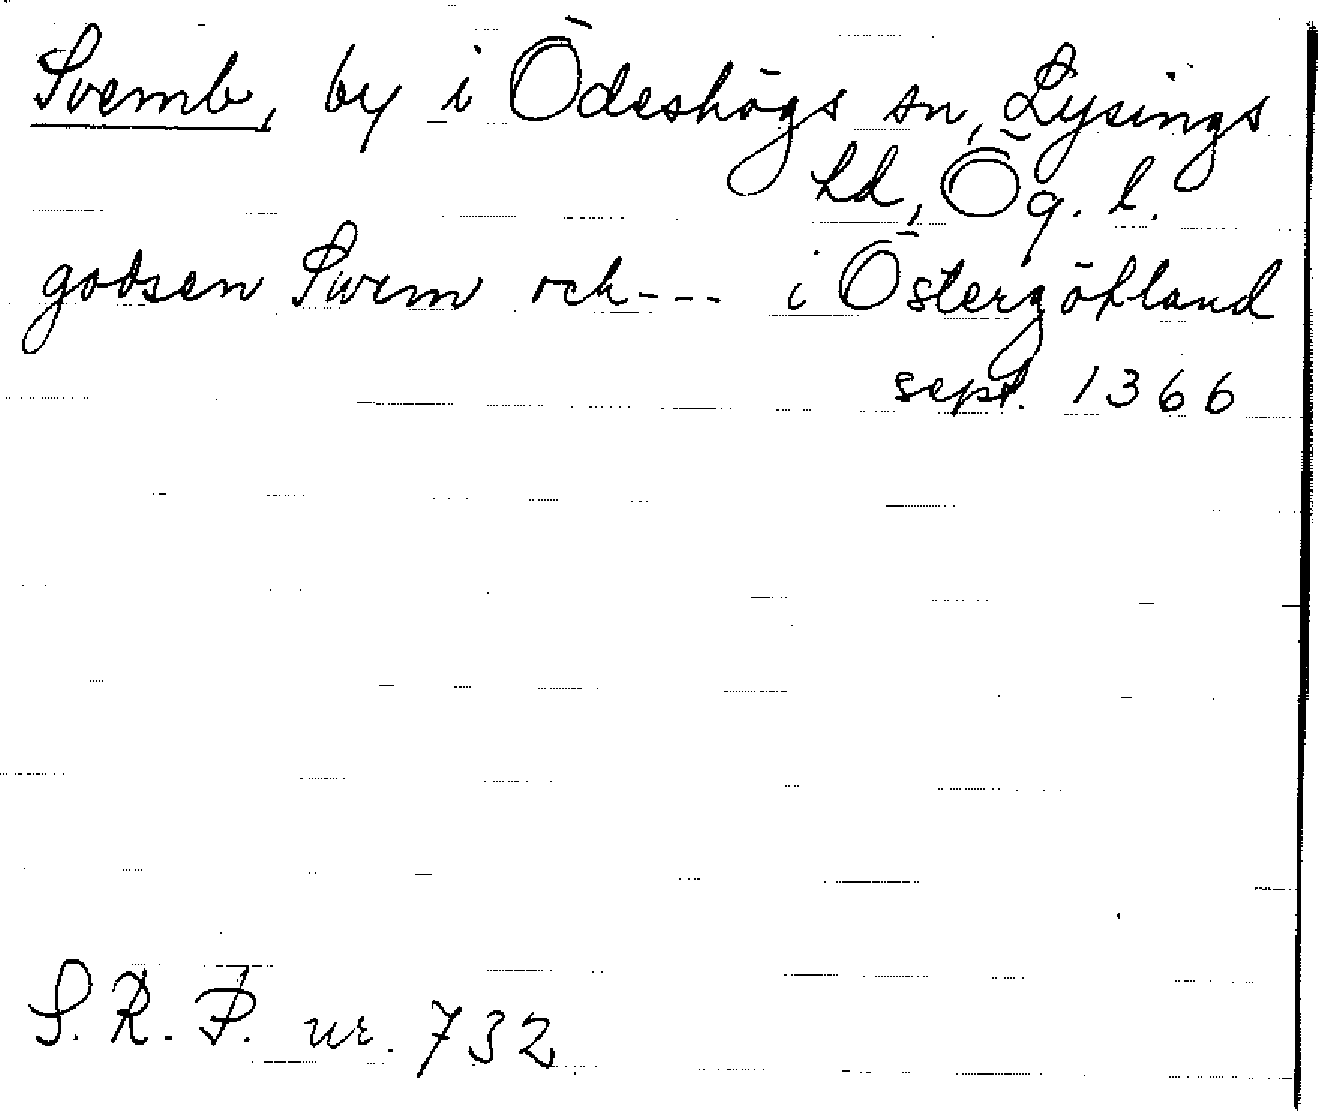 Svemb, by i Ödeshögs sn, Lysings
hd, Ög. l.
godsen Swem och --- i Östergötland
sept. 1366
S. R. P. nr. 732